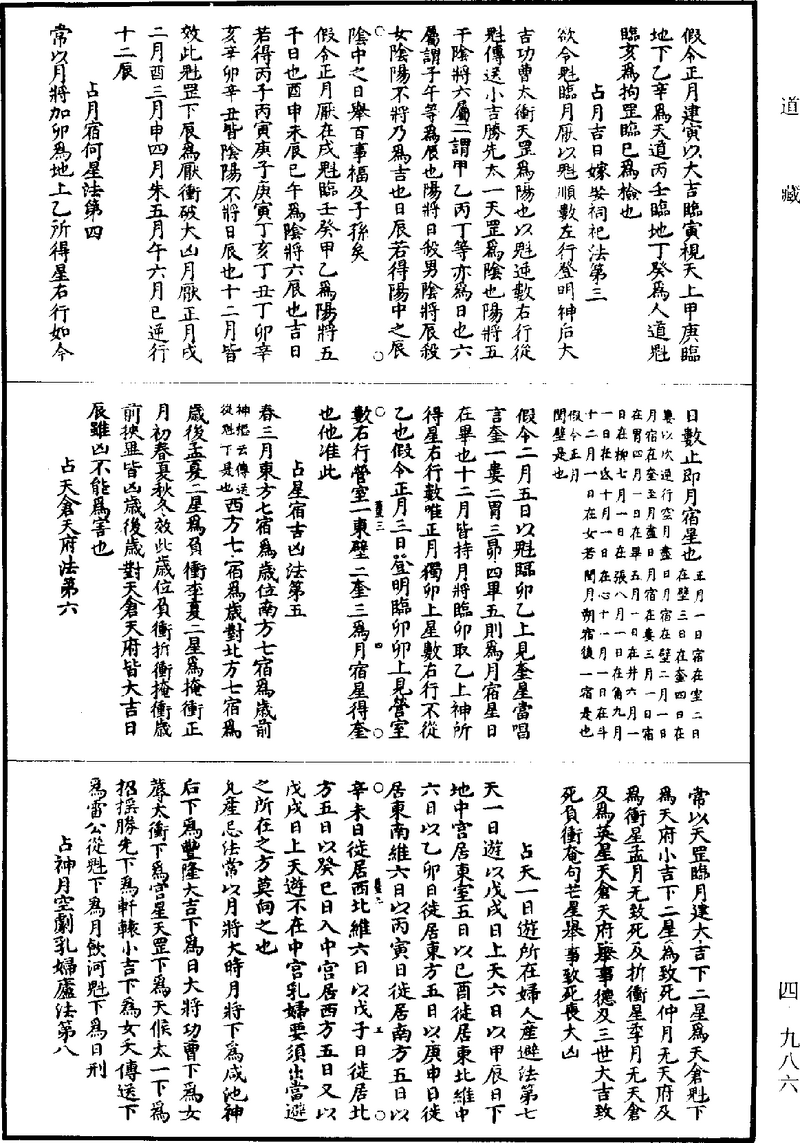 道藏
四・九八六
假令正月建寅以大吉臨寅視天上甲庚臨
地下乙辛為天道丙壬臨地丁癸為人道魁
臨亥為拘罡臨巳為檢也
占月吉日嫁娶祠祀法第三
欲令魁臨月厭以魁順數左行登明神后大
吉功曹太衝天罡為陽也以魁逆數右行從
魁傳送小吉勝先太一天罡為陰也陽將五
干陰將六屬二謂甲乙丙丁等亦為日也六
屬謂子午等為辰也陽將日殺男陰將辰殺
女陰陽不將乃為吉也日辰若得陽中之辰
陰中之日舉百事福及子孫矣
假令正月厭在戌魁臨壬癸甲乙為陽將五
干日也酉申未辰巳午為陰將六辰也吉日
若得丙子丙寅庚子庚寅丁亥丁丑丁卯辛
亥辛卯辛丑皆陰陽不將日辰也十二月皆
效此魁罡下辰為厭衝破大凶月厭正月戌
二月酉三月申四月未五月午六月巳逆行
十二辰
占月宿何星法第四
常以月將加卯為地上乙所得星右行如今
日數止即月宿星也正月一日宿在室二日
在壁三日在奎四日在
婁以次逆行空月盡日月宿在壁二月一日
月宿在奎至月盡日月宿在婁三月一日宿
在胃四月一日在畢五月一日在井六月一
日在柳七月一日在張八月一日在角九月
一日在氐十月一日在心十一月一日在斗
十二月一日在女若閏月朔宿後一宿是也
假令正月
閏壁是也
假令二月五日以魁臨卯乙上見奎星當唱
言奎一婁二胃三昴四畢五則為月宿星日
在畢也十二月皆持月將臨卯取乙上神所
得星右行數唯正月獨卯上星數右行不從
乙也假令正月三日登明臨卯卯上見營室
數右行營室一東壁二奎三為月宿星得奎
也他准此
占星宿吉凶法第五
春三月東方七宿為歲位南方七宿為歲前
神樞云傳送
從魁丁是也西方七宿為歲對北方七宿為
歲後孟夏二星為負衝季夏二星為掩衝正
月初春夏秋冬效此歲位負衝折衝掩衝歲
前挾畢皆凶歲後歲對天倉天府皆大吉日
辰雖凶不能為害也
占天倉天府法第六
常以天罡臨月建大吉下二星為天倉魁下
為天府小吉下二星為致死仲月无天府及
為衝星孟月无致死及折衝星季月无天倉
及為英星天倉天府舉事德及三世大吉致
死負衝奄句芒星舉事致死喪大凶
占天一日遊所在婦人產避法第七
天一日遊以戊戌日上天六日以甲辰日下
地中宮居東室五日以己酉徙居東北維中
六日以乙卯日徙居東方五日以庚申日徙
居東南維六日以丙寅日徙居南方五日以
辛未日徙居西北維六日以戊子日徙居北
方五日以癸巳日入中宮居西方五日又以
戊戌日上天遊不在中宮乳婦要須出當避
之所在之方莫向之也
凡產忌法常以月將大時月將下為咸池神
后下為豐隆大吉下為日大將功曹下為女
薜太衝下為宮星天罡下為天候太一下為
招搖勝先下為軒轅小吉下為女夭傳送下
為雷公從魁下為月飲河魁下為日刑
占神月空劇乳婦廬法第八